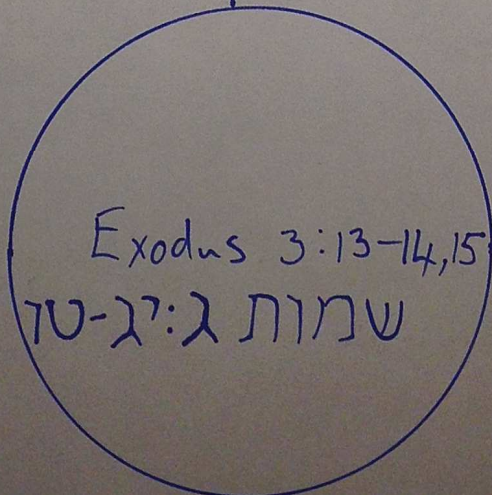 Exodus 3:13-14,15
שמות ג:יג-טו